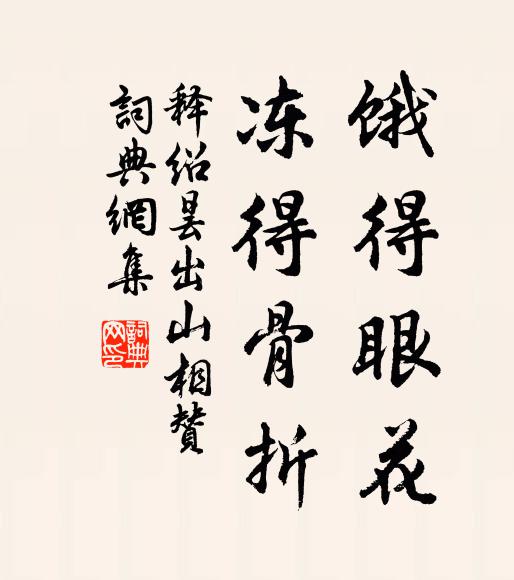 饿得眼花
冻得骨折
释绍昙出山相赞
詞典網集
詞典网印